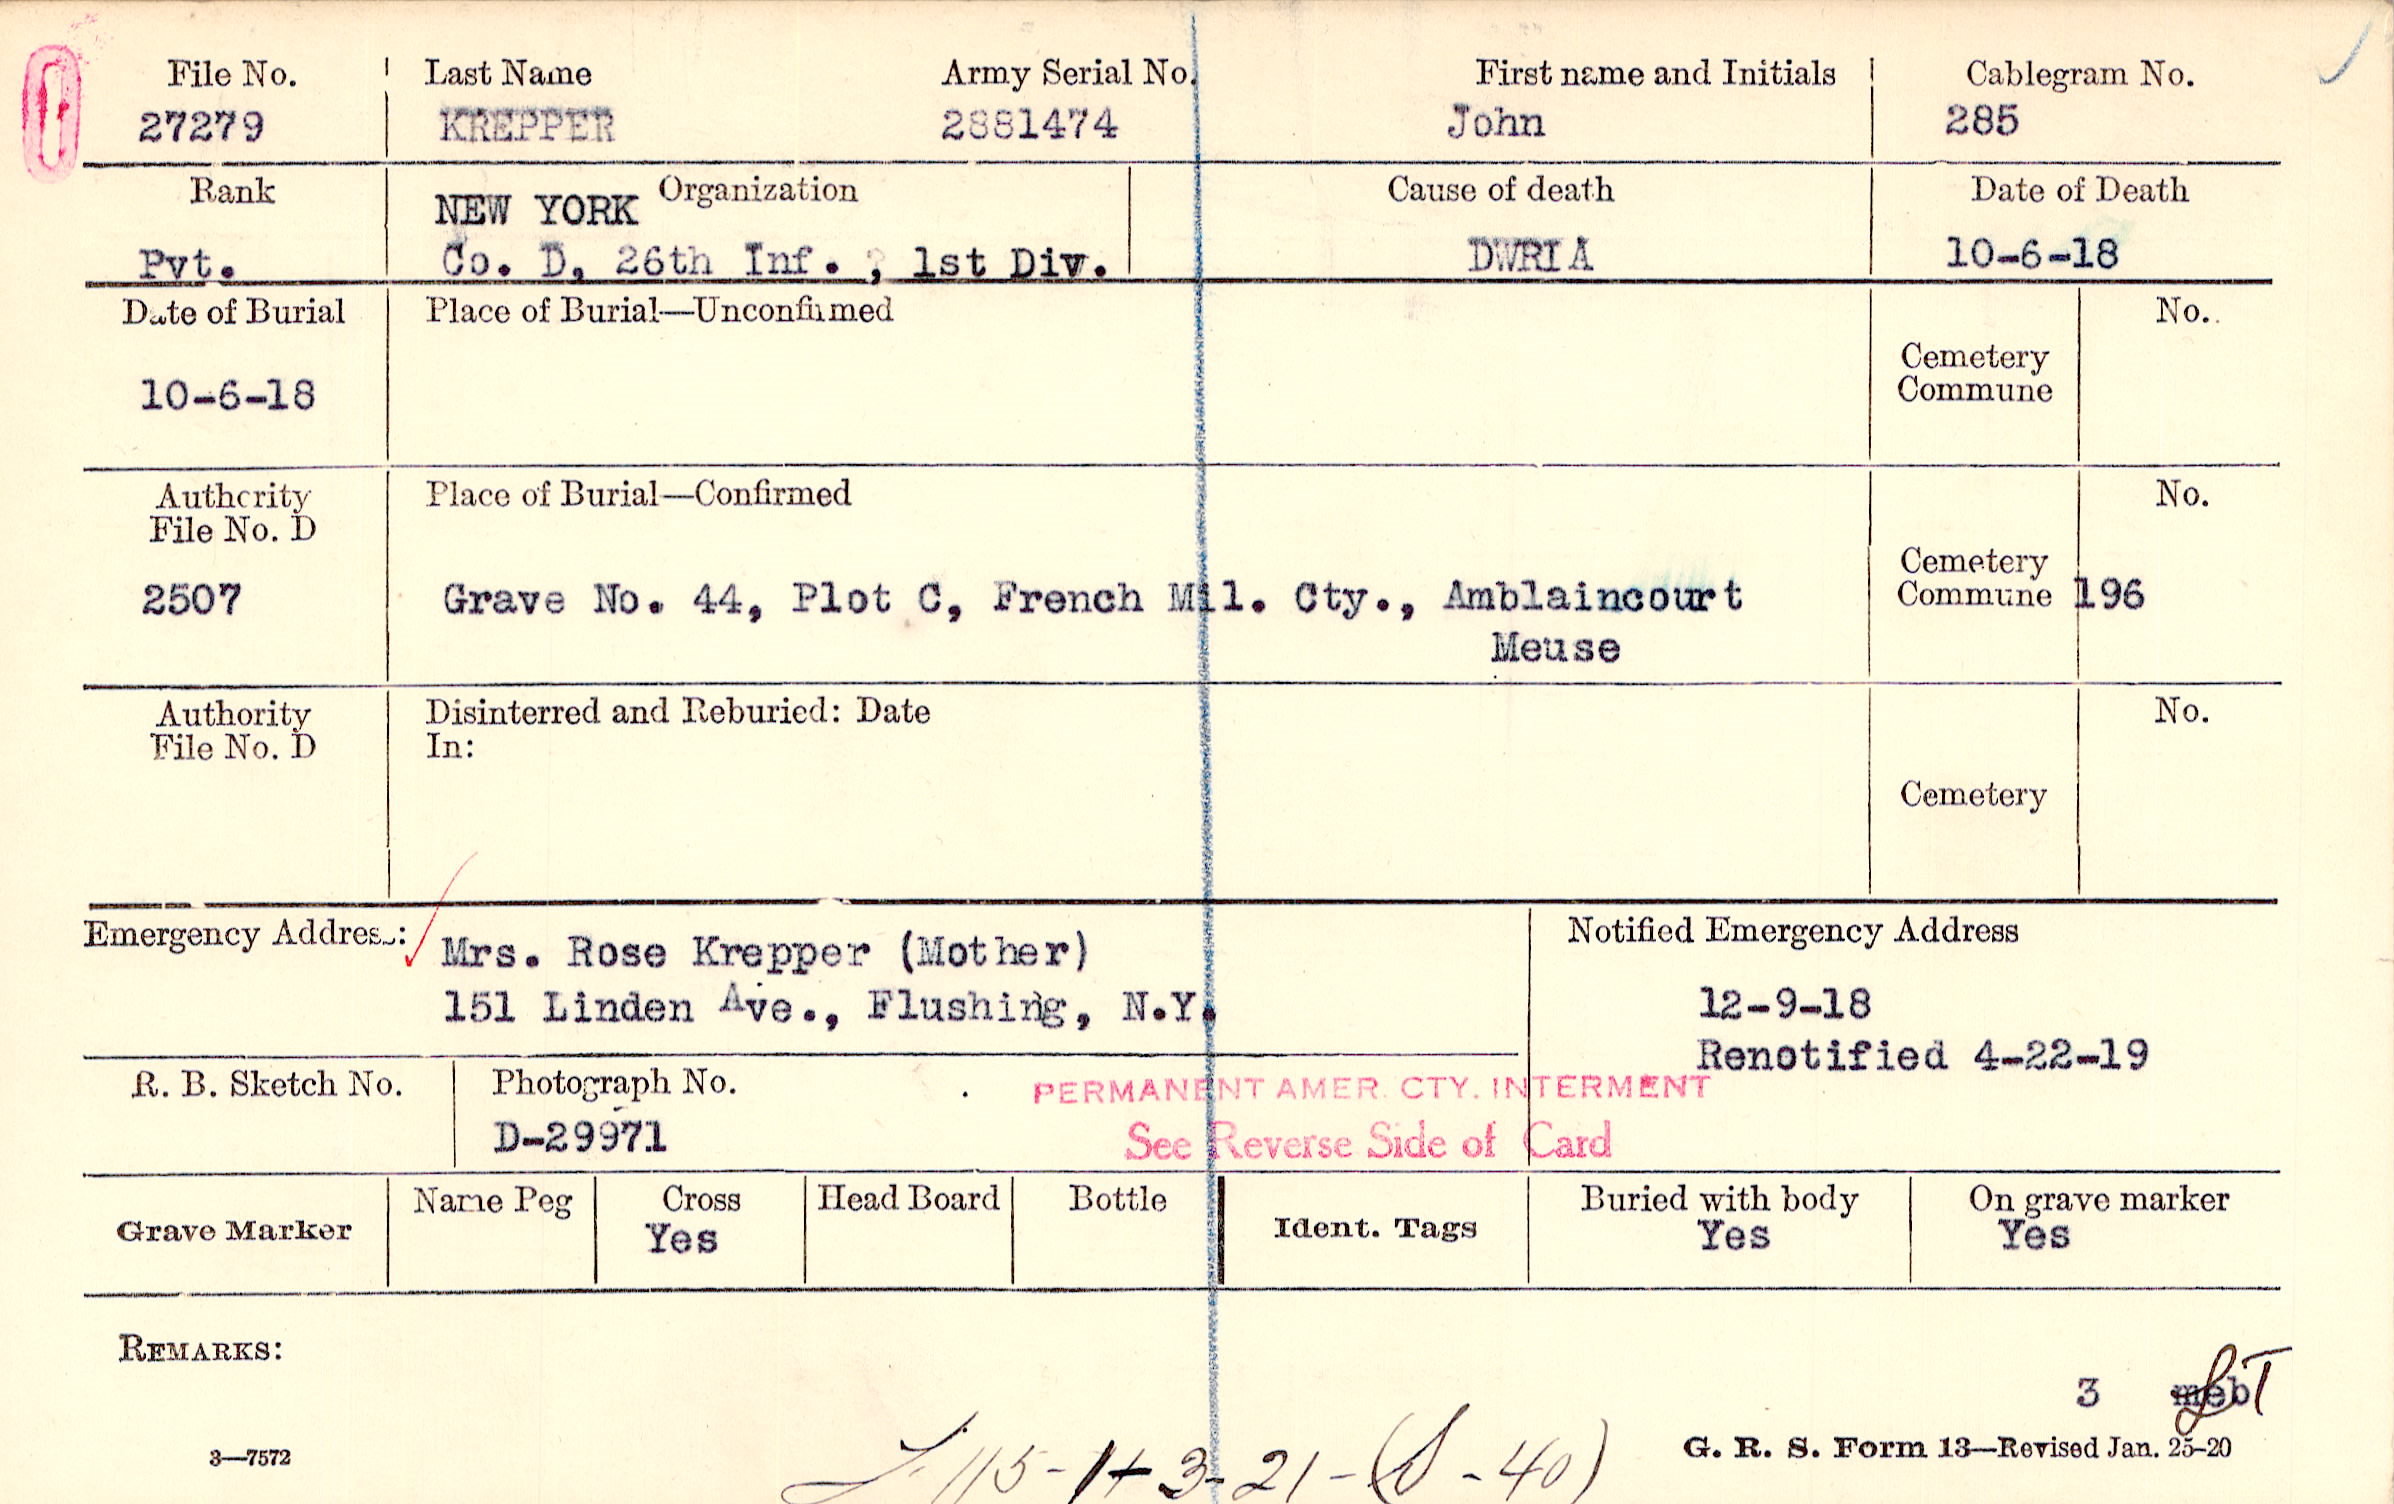 File No. Last Name Army Serial No. First name and Initials Cablegram No.
27279 KREPPER 2881474 John 285
Rank Organization Cause of death Date of Death
NEW YORK
Pvt. Co. D, 26th Inf. , 1st Div. DWRIA 10-6-18
Date of Burial Place of Burial—Unconfirmed No.
Cemetery
Commune
10-6-18
Authority Place of Burial—Confirmed No.
File No. D
Cemetery
2507 Grave No. 44, Plot C, French Mil. Cty., Amblaincourt Commune 196
Meuse
Authority Disinterred and Reburied: Date No.
File No. D In:
Cemetery
Emergency Address: Notified Emergency Address
Mrs. Rose Krepper (Mother)
151 Linden Ave., Flushing, N.Y. 12-9-18
Renotified 4-22-19
R. B. Sketch No. Photograph No.
PERMANENT AMER. CTY. INTERMENT
D-29971 See Reverse Side of Card
Grave Marker Name Peg Cross Head Board Bottle Ident. Tags Buried with body On grave marker
Yes Yes Yes
REMARKS:
3 meb
3—7572 G. R. S. Form 13—Revised Jan. 25-20
3-21-(S-40)